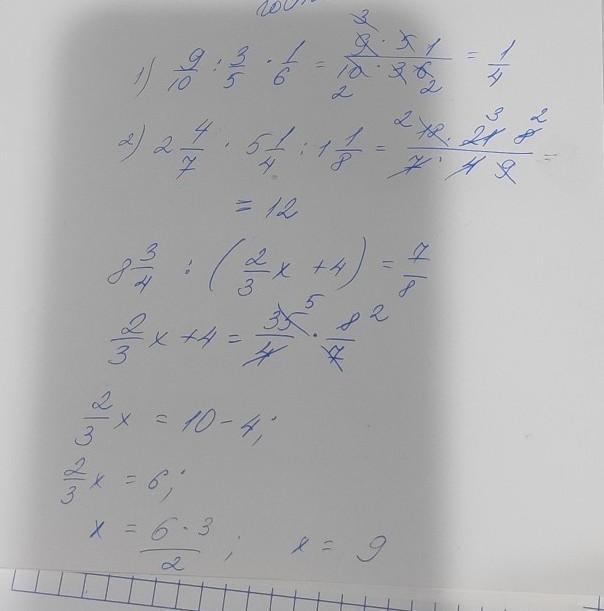 1) 9/10 : 3/5 · 1/6 = (9 · 5 1)/(10 · 3 6) = 1/4
2) 2 4/7 · 5 1/4 : 1 1/8 = (18 · 21 8)/(7 · 4 9) =
= 12
8 3/4 : (2/3 x + 4) = 7/8
2/3 x + 4 = 35/4 · 8/7
2/3 x = 10 - 4;
2/3 x = 6;
x = (6 · 3)/2 ; x = 9